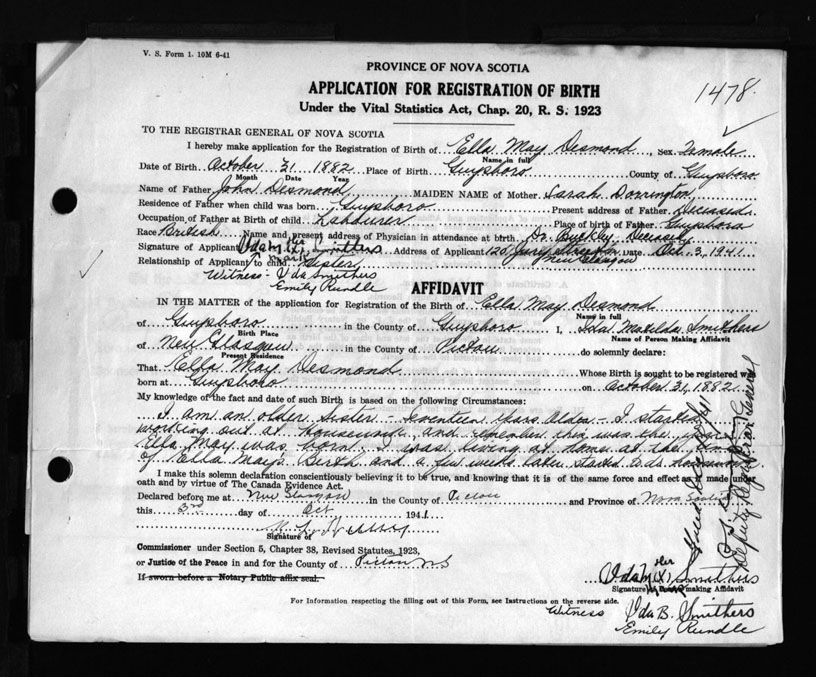 V. S. Form 1. 10M 6-41
PROVINCE OF NOVA SCOTIA
APPLICATION FOR REGISTRATION OF BIRTH
Under the Vital Statistics Act, Chap. 20, R. S. 1923
1478
TO THE REGISTRAR GENERAL OF NOVA SCOTIA
I hereby make application for the Registration of Birth of Ella May Desmond, Sex Female
Name in full
Date of Birth October 31 1882 Place of Birth Guysboro County of Guysboro
Month Date Year
Name of Father John Desmond MAIDEN NAME of Mother Sarah Dorrington
Residence of Father when child was born Guysboro Present address of Father Deceased
Occupation of Father at Birth of child Labourer Place of birth of Father Guysboro
Race British Name and present address of Physician in attendance at birth Dr. Buckley Deceased
Signature of Applicant Ida M. (X) Smithers Address of Applicant 125 New Glasgow Date Oct. 3, 1941
her mark
Relationship of Applicant to child Sister
Witness - Ida Smithers
Emily Rundle
AFFIDAVIT
IN THE MATTER of the application for Registration of the Birth of Ella May Desmond
Name in full
of Guysboro in the County of Guysboro I, Ida Matilda Smithers
Birth Place Name of Person Making Affidavit
of New Glasgow in the County of Pictou do solemnly declare:
Present Residence
That Ella May Desmond Whose Birth is sought to be registered was
born at Guysboro on October 31, 1882
My knowledge of the fact and date of such Birth is based on the following Circumstances:
I am an older sister - Seventeen years older - I started
working out at Housework, and remember this was the year
Ella May was born. I was living at home at the time
of Ella May's Birth and a few weeks later started to do housework
I make this solemn declaration conscientiously believing it to be true, and knowing that it is of the same force and effect as if made under
oath and by virtue of The Canada Evidence Act.
Declared before me at New Glasgow in the County of Pictou and Province of Nova Scotia
this 3rd day of Oct 1941
Signature of
Commissioner under Section 5, Chapter 38, Revised Statutes, 1923,
or Justice of the Peace in and for the County of Pictou N S
If sworn before a Notary Public affix seal.
Ida M (X) Smithers
her mark
Signature of Person making Affidavit
For Information respecting the filling out of this Form, see Instructions on the reverse side.
Witness Ida B. Smithers
Emily Rundle
Deputy Registrar General